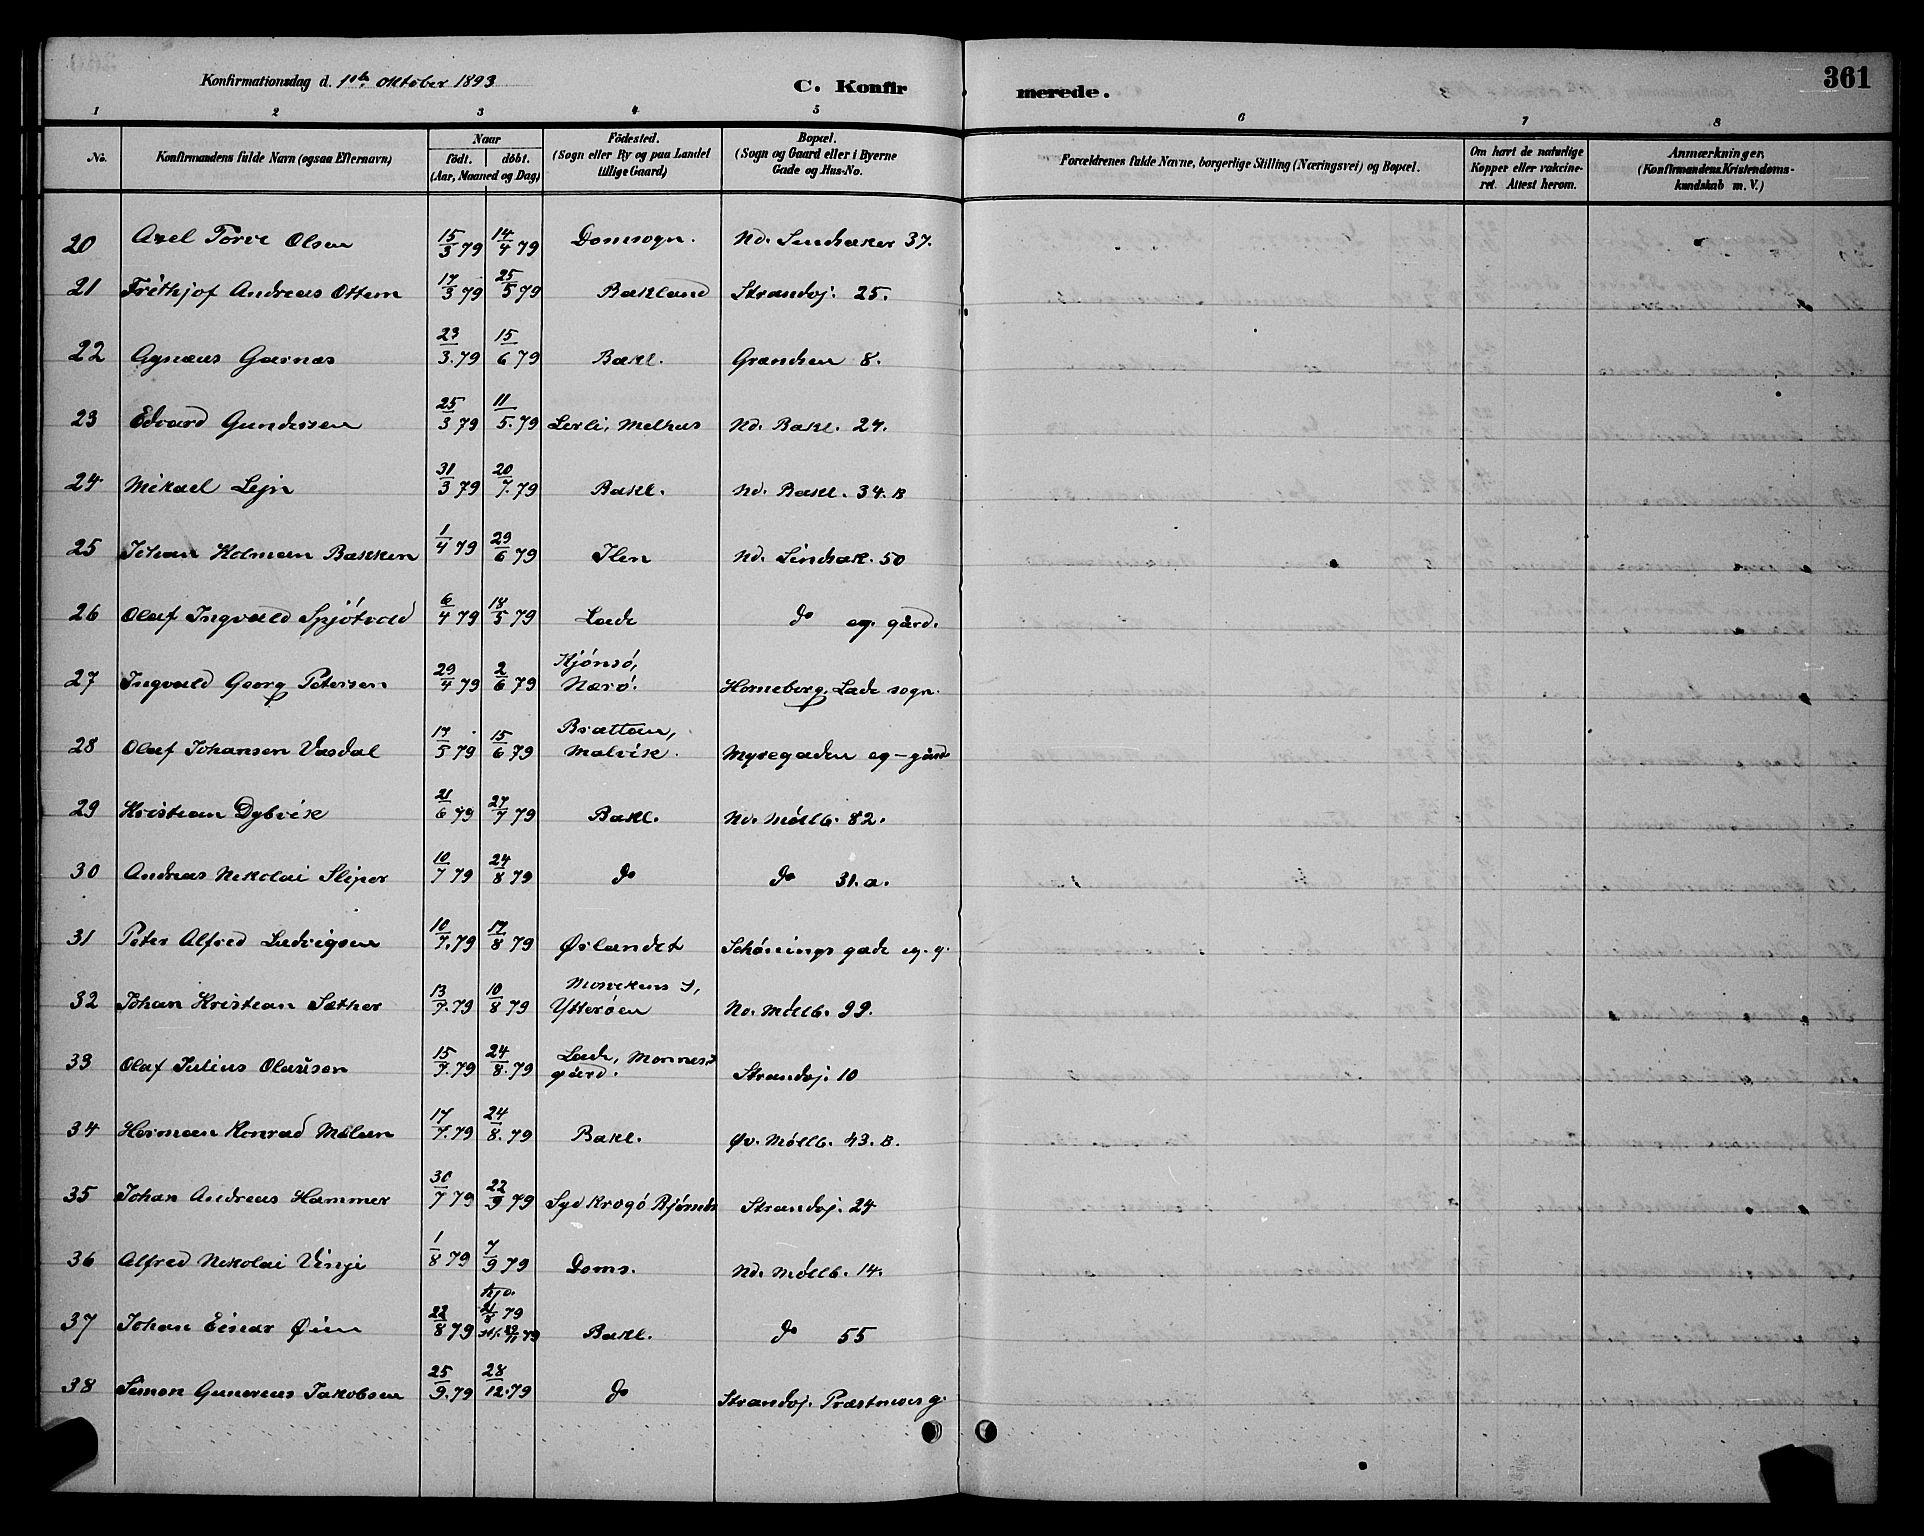 Konfirmationsdag d. 1ste Oktober 1893
C. Konfirmerede.
361
1 2 3 4 5 6 7 8
No.
Konfirmandens fulde Navn (ogsaa Efternavn)
Naar
födt. döbt.
(Aar, Maaned og Dag)
Födested.
(Sogn eller By og paa Landet
tillige Gaard)
Bopæl.
(Sogn og Gaard eller i Byerne
Gade og Hus-No.
Forældrenes fulde Navne, borgerlige Stilling (Næringsvei) og Bopæl.
Om havt de naturlige
Kopper eller vakcine-
ret. Attest herom.
Anmærkninger.
(Konfirmandens Kristendoms-
kundskab m. V.)
20 Axel Torve Olsen 15/3 79 14/4 79 Domsogn. Nd. Sindsaker 37.
21 Frithjof Andreas Ottem 17/3 79 25/5 79 Bakland Strandvj. 25.
22 Garnæs 23/3.79 15/6 79 Bakl. Grændsen 8.
23 Edvard Gundersen 25/3 79 11/5.79 Lerli, Melhus Nd. Bakl. 24.
24 Mikael Lejn 31/3 79 20/7.79 Bakl. Nd. Bakl. 34.B
25 Johan Holman Bakken 1/4 79 29/6 79 Ilen Nd. Sindsak. 50
26 Olaf Ingvald Spjötvold 6/4 79 18/5 79 Lade do eg. gård.
27 Ingvald Georg Petersen 29/4 79 2/6 79 Kjönsö,
Nærö. Horneberg, Lade sogn.
28 Olaf Johansen Vasdal 17/5 79 15/6 79 Brattan,
Malvik. Myregaden eg-gård
29 Kristian Dybvik 21/6 79 27/7 79 Bakl. Nd. Möllb. 82.
30 Andreas Nikolai Sliper 10/7 79 24/8 79 do do 31.a.
31 Peter Alfred Ludvigsen 10/7.79 17/8 79 Ørlandet Schönings gade eg. g.
32 Johan Kristian Sæther 13/7.79 10/8 79
Ytterøen Nd. Möllb. 99.
33 Olaf Julius Olausen 15/7.79 24/8.79 Lade,
gård. Strandvj. 10
34 Herman Konrad Mælan 17/7.79 24/8.79 Bakl. Øv. Möllb. 43.B.
35 Johan Andreas Hammer 30/7 79 22/9 79 Syd Krogö Bjørnör Strandvj. 24
36 Alfred Nikolai Vinje 1/8 79 7/9 79 Doms. Nd. Möllb. 14.
37 Johan Einar Øien 22/8 79 hjd. 21/8 79
st. 79 Bakl. do 55
38 Simon Gunerius Jakobsen 25/9.79 28/12.79 do Strandvj. Præstnæs g.